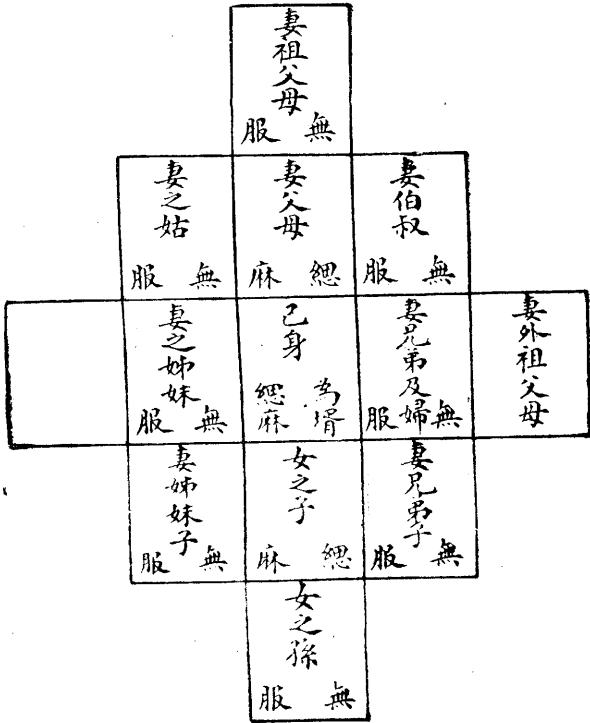 妻祖父母
無服
妻伯叔
無服
妻父母
緦麻
妻之姑
無服
妻外祖父母
妻兄弟及婦
無服
己身
為壻
緦麻
妻之姊妹
無服
妻兄弟子
無服
女之子
緦麻
妻姊妹子
無服
女之孫
無服